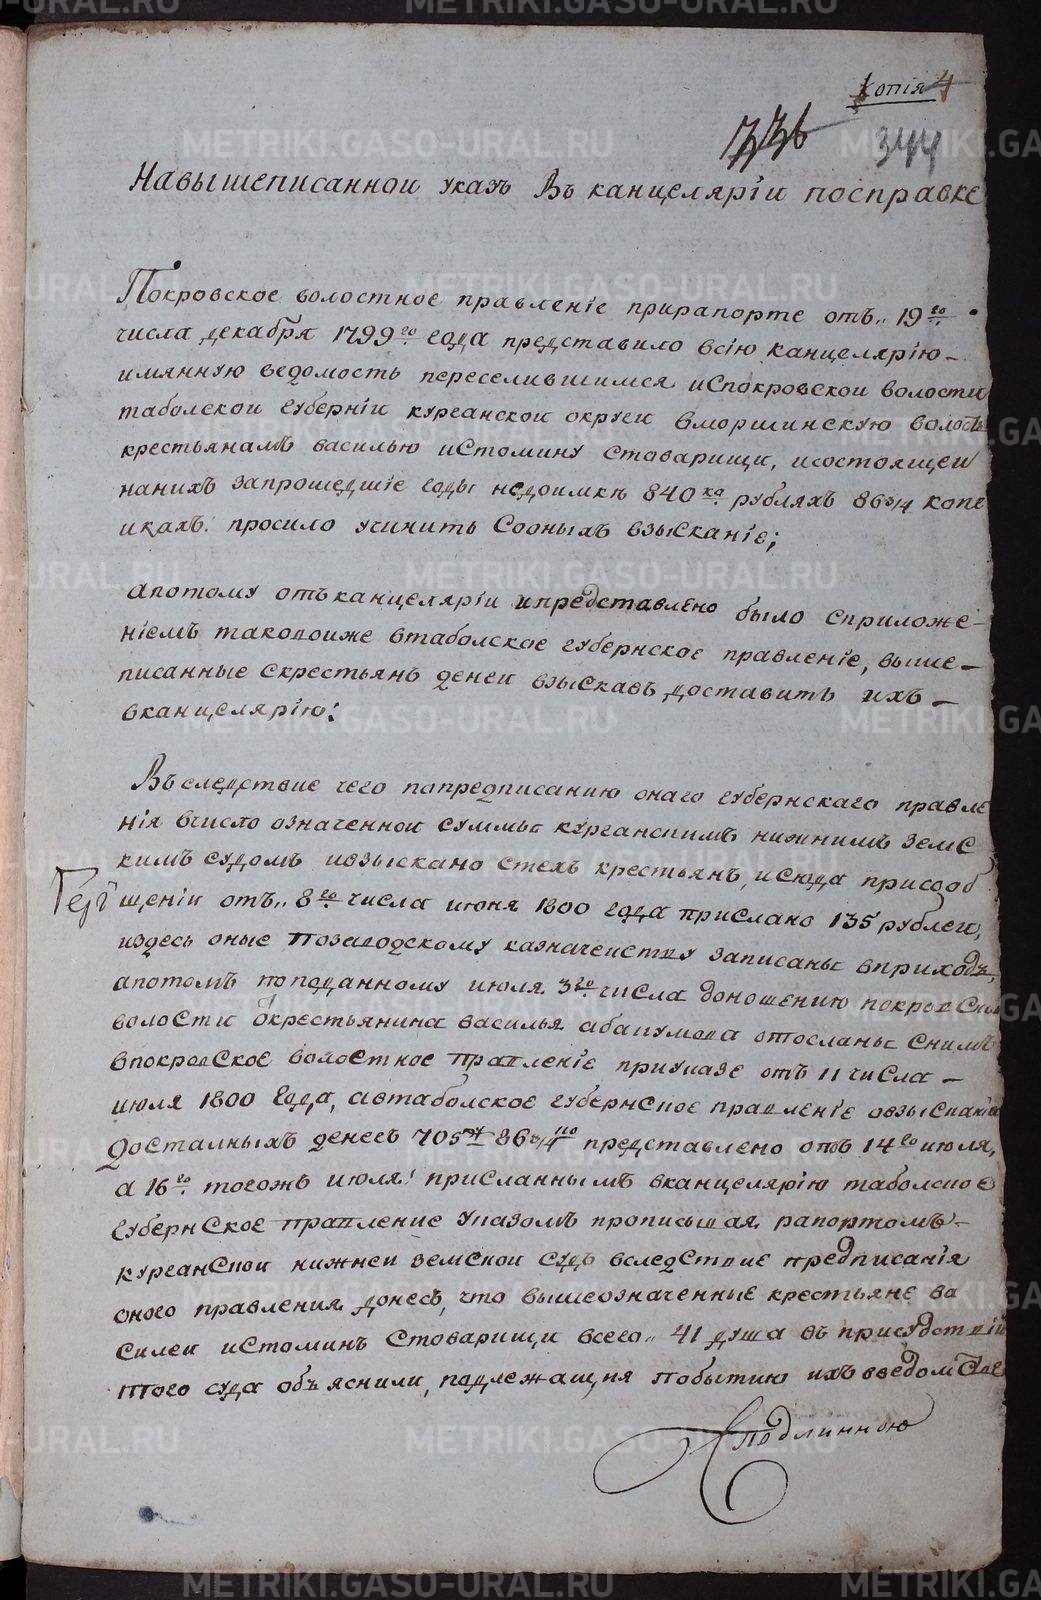 Копія 4
344
На вышеписанной указъ Въ канцеляріи посправке
Покровское волостное правленіе прирапорте отъ„ 19го
числа декабря 1799го года представило всію канцелярію
имянную ведомость переселившимся испокровской волости
таболской губерніи курганской округи вморшинскую волость
крестьянамъ василью истомину стоварищи, исостоящей
нанихъ запрошедшіе годы недоимкѣ 840ка рубляхъ 86 3/4 копѣ
икахъ: просило учинить Сооныхъ взысканіе;
апотому отъ канцеляріи ипредставлено было сприложе-
ніемъ таковоиже втаболское губернское правленіе, выше-
писанные скрестьянъ денги взыскавъ доставить ихъ
вканцелярію:
Въследствие чего попредписанию онаго губернскаго правле
нія вчисло означенной суммы курганскимъ нижнимъ земс
кимъ судомъ ивзыскано стехъ крестьянъ, исюда присооб
щеніи отъ„ 8го числа июня 1800 года прислано 135 рублей,
издесь оные позаводскому казначейству записаны вприходъ,
апотомъ поподанному июля 3го числа доношению покровской
волости крестьянина василья отосланы снимъ
впокровское волостное правленіе приуказе отъ 11 числа
июля 1800 года, автаболское губернское правленіе овзысканіи
досталныхъ денегъ 705ти 86 3/4 представлено отъ 14го июля,
а 16го тогожъ июля! присланнымъ вканцелярію таболское
губернское правление указомъ прописывая рапортомъ
курганской нижней земской судъ вследствие предписанія
оного правления донесъ, что вышеозначенные крестьяне ва
силей истоминъ стоварищи всего„ 41 душа въ присудствіи
того суда объяснили, подлежащия побытию ихъ введомстве
Сподлинною